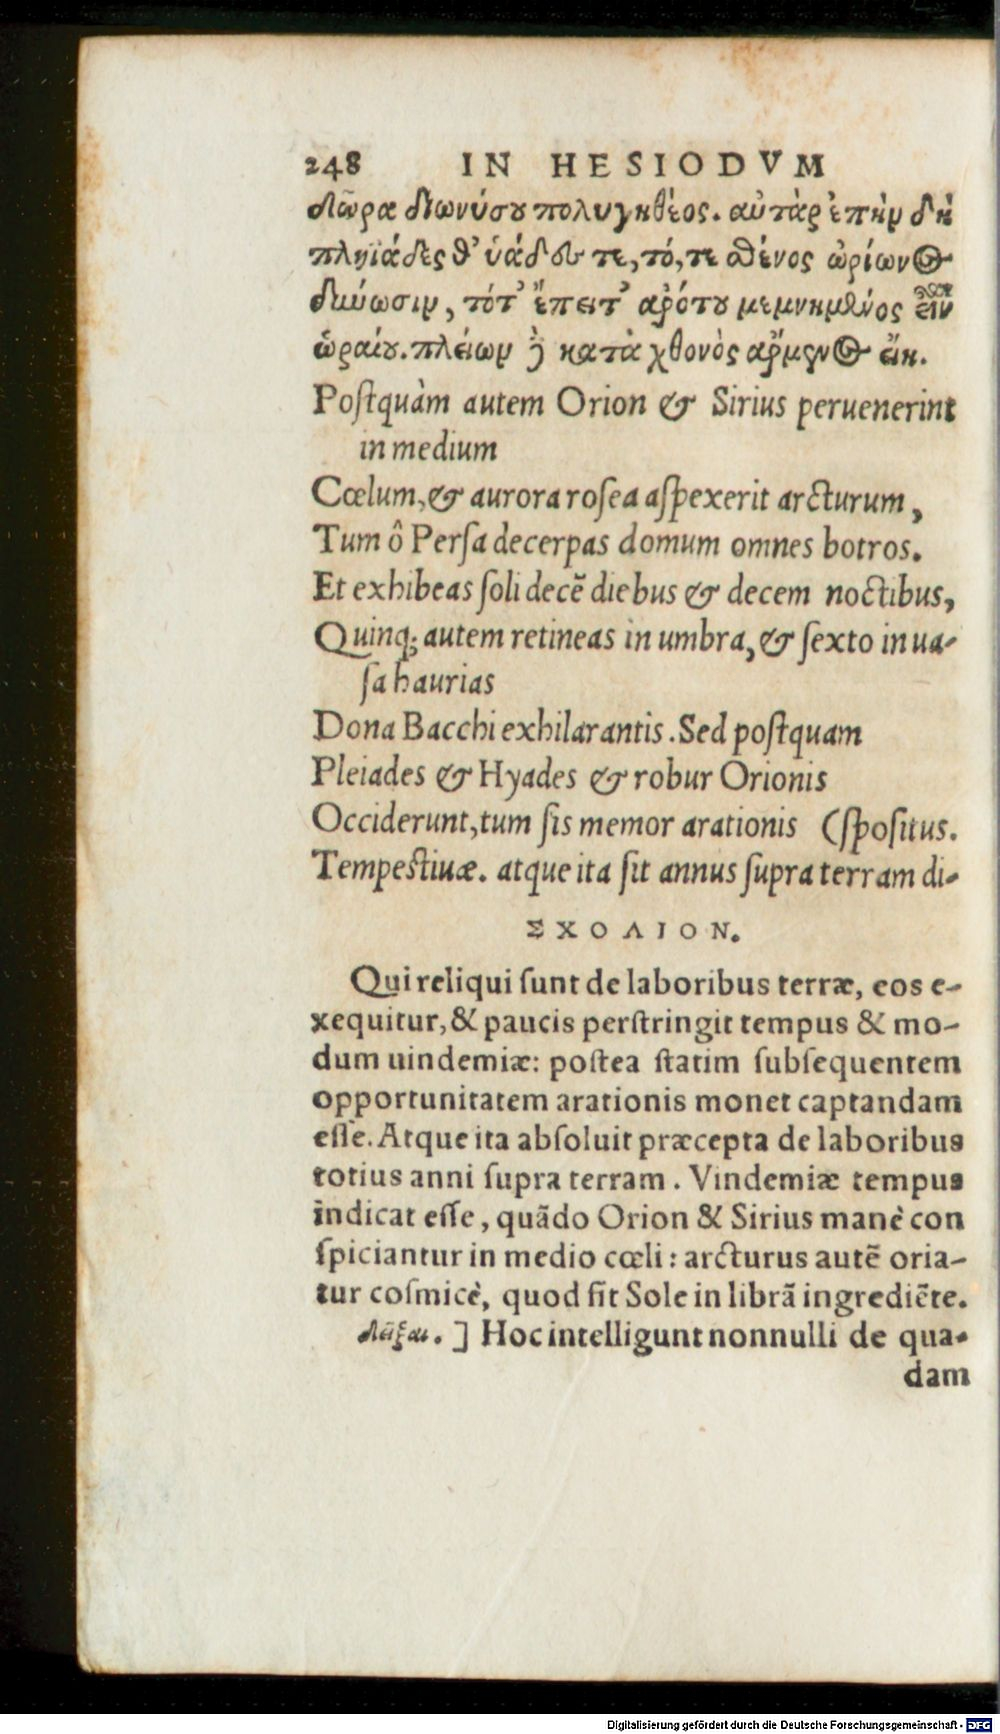 248 IN HESIODVM
δῶρα διωνύσου πολυγηθέος. αὐτὰρ ἐπὴν δὴ
πληϊάδες θ᾽ ὑάδες τε, τό, τε σθένος ὠρίωνος
δύνωσιν, τότ᾽ ἔπειτ᾽ ἀρότου μεμνημένος εἶναι
ὡραίου. πλειὼν δὲ κατὰ χθονὸς ἄρμενος εἴη.
Poſtquàm autem Orion & Sirius peruenerint
in medium
Cœlum, & aurora roſea aſpexerit arcturum,
Tum ô Perſa decerpas domum omnes botros.
Et exhibeas ſoli decẽ diebus & decem noctibus,
Quinq; autem retineas in umbra, & ſexto in ua-
ſa haurias
Dona Bacchi exhilarantis. Sed poſtquam
Pleiades & Hyades & robur Orionis
Occiderunt, tum ſis memor arationis (ſpoſitus.
Tempeſtiuæ. atque ita ſit annus ſupra terram di-
ΣΧΟΛΙΟΝ.
Qui reliqui ſunt de laboribus terræ, eos e-
xequitur, & paucis perſtringit tempus & mo-
dum uindemiæ: poſtea ſtatim ſubſequentem
opportunitatem arationis monet captandam
eſſe. Atque ita abſoluit præcepta de laboribus
totius anni ſupra terram. Vindemiæ tempus
indicat eſſe, quãdo Orion & Sirius manè con
ſpiciantur in medio cœli: arcturus autẽ oria-
tur coſmicè, quod fit Sole in librã ingrediẽte.
δεῖξαι. ] Hoc intelligunt nonnulli de qua-
dam
Digitalisierung gefördert durch die Deutsche Forschungsgemeinschaft - DFG